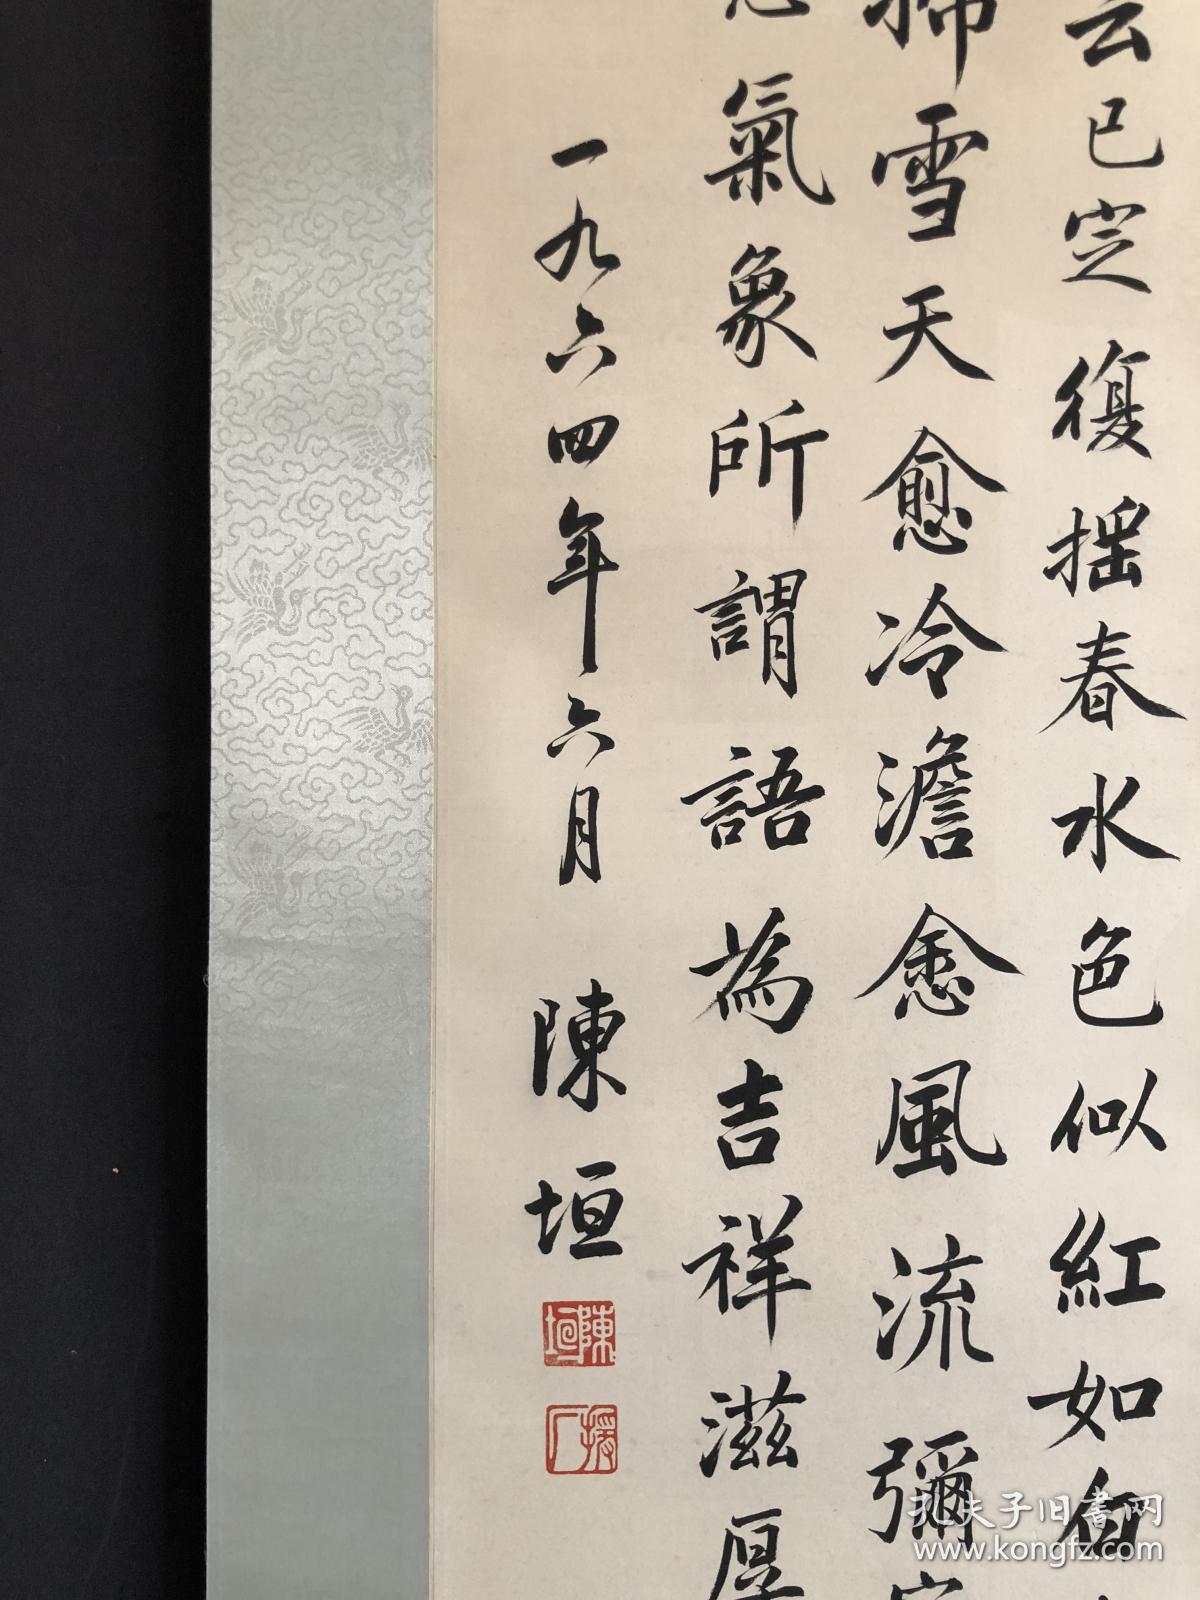 云已定復摇春水色似紅如何
掃雪天愈冷澹愈風流彌
氣象所謂語為吉祥滋厚
一九六四年六月 陳垣
陳垣
援厂
孔夫子旧書网
www.kongfz.com